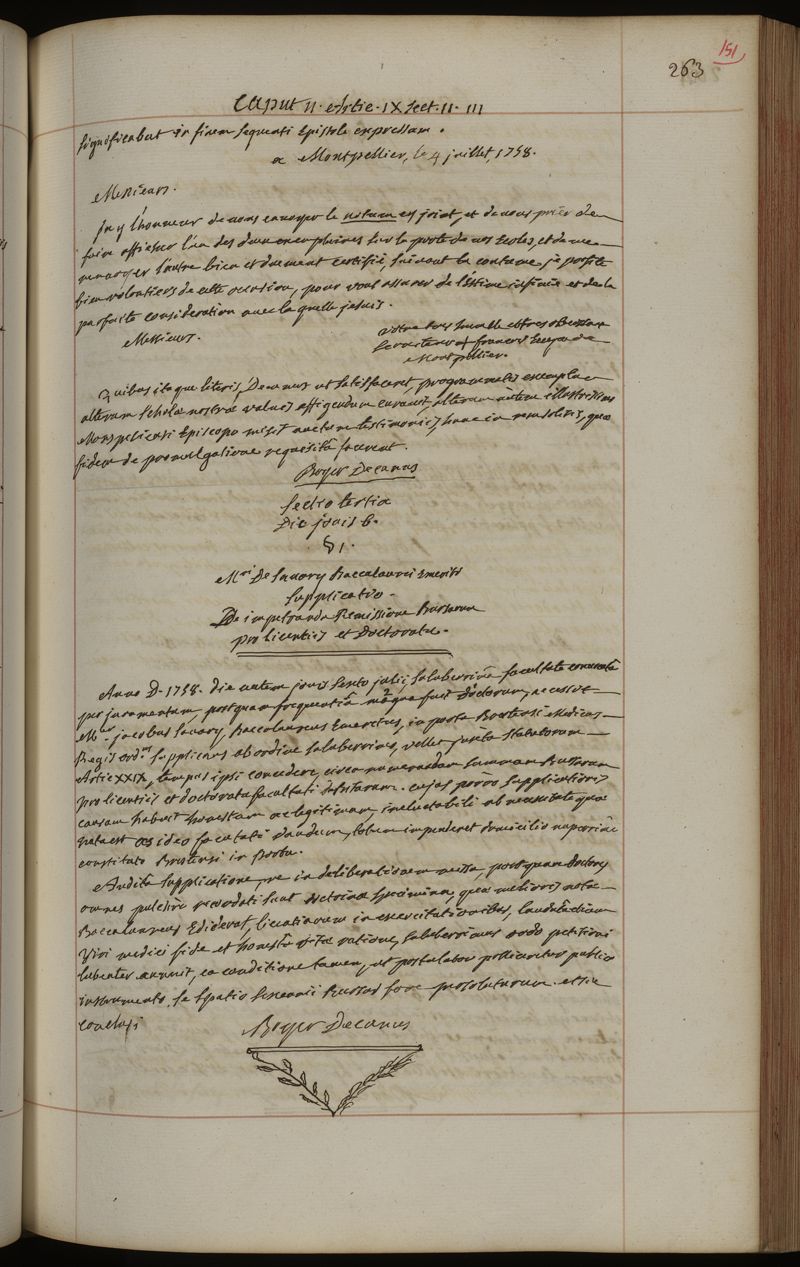 151
263
Caput II. Artic. IX Sect. II. III
significabat in finem sequenti Epistola expressam.
a Montpellier, le 4 juillet, 1758.
Messieurs.
J'ay l'honneur de vous envoyer le cy joint, et de vous prier de
faire afficher l'un des deux exemplaires sur la porte de vos Ecoles, et de me
renvoyer l'autre bien et duement certifié, suivant la coutume, je profite
bien volontiers de cette occasion, pour vous assurer de l'Estime infinie et de la
parfaite consideration avec laquelle je suis.
Messieurs.
votre tres humble et tres obeissant
serviteur + françois Eveque de
Montpellier.
Quibus itaque literis, Decanus ut satisfaceret, programmatis exemplar
alterum scholæ nostræ valvis affigendum curavit, alterum autem illustrissimo
Monspeliensi Episcopo misit quæ
fidem de promulgatione requisita facerent.
Boyer Decanus
Sectio tertia
Die jovis 6.
§ 1.
Mri. De Savary Baccalaurei Emeriti
Supplicatio.
De impetranda Remissione Bursarum
pro licentiis et Doctoratu.
Anno D. 1758. die autem jovis sexto julii, saluberrima facultate convocata
per juramentum postquam frequentia magna fuit doctorum, accessit
Mer. jacobus Savary, Baccalaureus Emeritus, in portu Brestensi Medicus
Regis ordrius supplicans ab ordine saluberrimo, vellet juxta statutorum
Artic XXIX, tempus ipsi concedere, circa numerandam summam Bursarum
pro licentiis et doctoratu facultati cujus porro supplicationis
causam habuit honestam ac legitimam, ineluctabili ab necessitate quæ
nata est totum impenderet domicilio nuperrimè
constituto Brestensi in portu.
Audita supplicatione, re in deliberationem missa, postquam doctores
omnes pulchrè recordati sunt doctrinæ specimina, quæ melioris notæ
Baccalaureus Ediderat, licentiarum in exercitationibus, laudata etiam
Viri medici fide et honesta vitæ ratione, saluberrimus ordo petitioni
lubenter annuit, ea conditione tamen, ut postulator polliceretur publico
instrumento, se spatio sexennii Bursas fore persoluturum. et sic
conclusi
Boyer Decanus